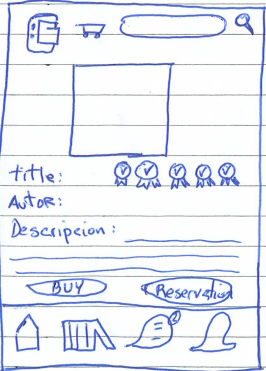 title:
Autor:
Descripcion:
BUY Reservation
2